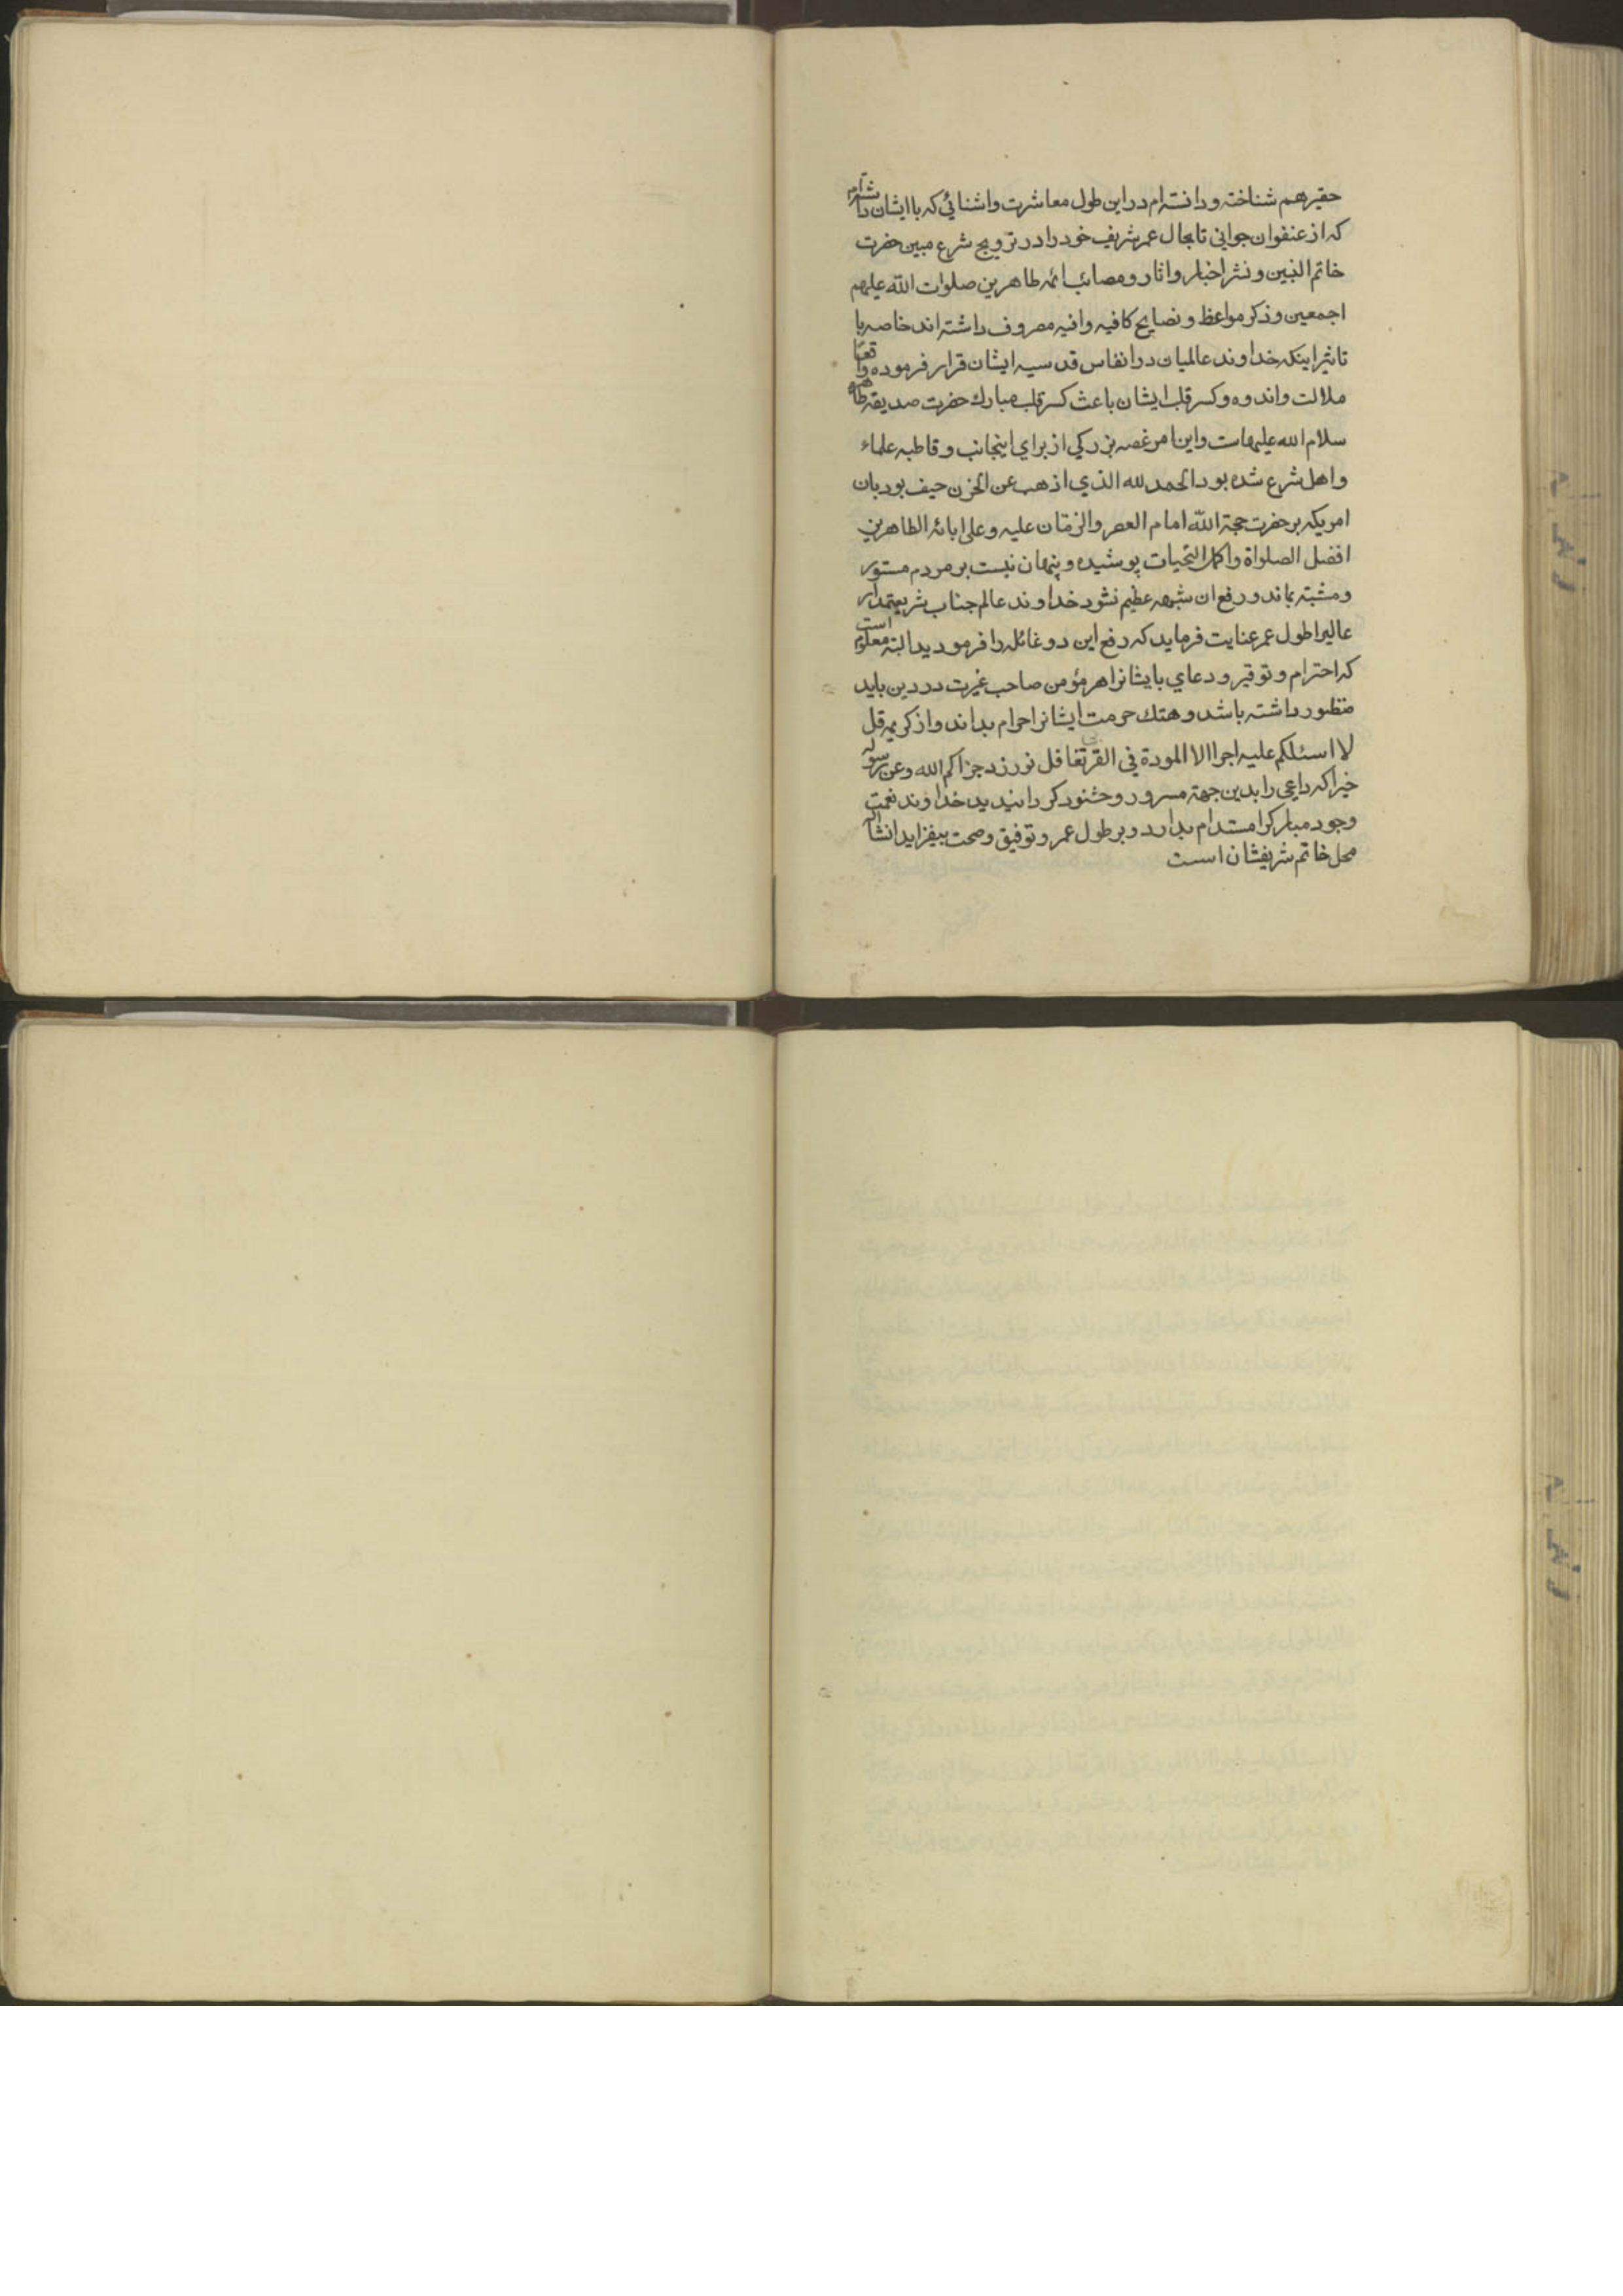 حقیر هم شناخته و دانسته‌ام در این طول معاشرت و اشنائی که با ایشان داشته‌ام
که از عنفوان جوانی تا بحال عمر شریف خود را در ترویج شرع مبین حضرت
خاتم النبین و نشر اخبار و اثار و مصائب ائمه طاهرین صلوات الله علیهم
اجمعین و ذکر مواعظ و نصایح کافیه وافیه مصروف داشته‌اند خاصه با
تاثیر اینکه خداوند عالمیان در انفاس قدسیه ایشان قرار فرموده واقعا
ملالت و اندوه و کسر قلب ایشان باعث کسر قلب مبارک حضرت صدیقه طاهره
سلام الله علیهاست و این امر غصه بزرکی از برای اینجانب و قاطبه علماء
و اهل شرع شده بود الحمد لله الذي اذهب عن الحزن حیف بود بان
امریکه بر حضرت حجة الله امام العصر والزمان علیه و علی ابائه الطاهرین
افضل الصلواة و اکمل التحیات پوشیده و پنهان نیست بر مردم مستور
و مشتبه بماند و رفع ان شبهه عظیم نشود خداوند عالم جناب شریعتمدار
عالیرا طول عمر عنایت فرماید که دفع این دو غائله را فرمودید البته معلوم است
که احترام و توقیر و دعای با یشانرا هر مؤمن صاحب غیرت در دین باید
منظور داشته باشد و هتک حرمت ایشانرا حرام بداند و از کریمه قل
لا اسئلکم علیه اجرا الا المودة في القربی تغافل نورزد جزاکم الله و عن رسوله
خیرا که داعی را بدین جهة مسرور و خشنود کردانیدید خداوند نعمت
وجود مبارکرا مستدام بدارد و بر طول عمر و توفیق و صحت بیفزاید انشاالله
محل خاتم شریفشان است